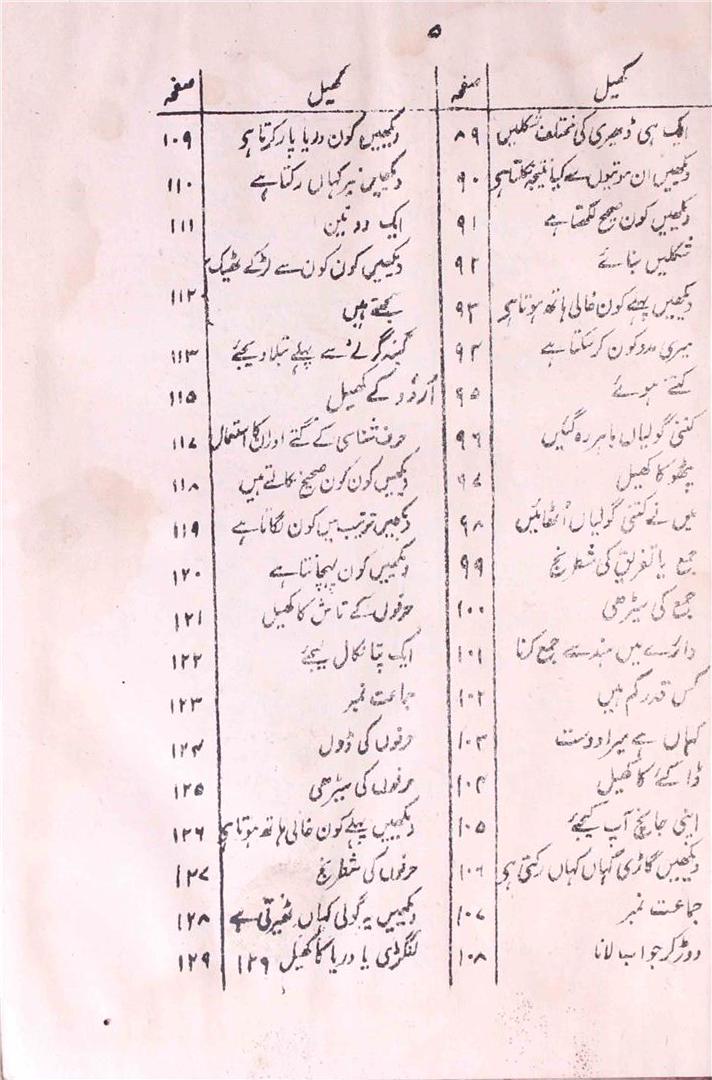 ۵
کھیل صفحہ
ایک ہی ڈھیری کی مختلف شکلیں ۸۹
دیکھیں ان موتیوں سے کیا نتیجہ نکلتا ہی ۹۰
دیکھیں کون صحیح لکھتا ہے ۹۱
شکلیں بنائے ۹۲
دیکھیں پہلے کون خالی ہاتھ ہوتا ہی ۹۳
میری مدد کون کر سکتا ہے ۹۴
کتنے ہوئے ۹۵
کتنی گولیاں باہر رہ گئیں ۹۶
پٹھو کا کھیل ۹۷
میں نے کتنی گولیاں اُٹھائیں ۹۸
جمع یا تفریق کی شطرنج ۹۹
جمع کی سیڑھی ۱۰۰
دائرے میں ہندسے جمع کرنا ۱۰۱
کس قدر کم ہیں ۱۰۲
کہاں ہے میرا دوست ۱۰۳
ڈاکئے کا کھیل ۱۰۴
اپنی جانچ آپ کیجئے ۱۰۵
دیکھیں گاڑی کہاں کہاں رکتی ہی ۱۰۶
جماعت نمبر ۱۰۷
دوڑ کر جواب لانا ۱۰۸
کھیل صفحہ
دیکھیں کون دریا پار کرتا ہی ۱۰۹
دیکھیں تیر کہاں رکتا ہے ۱۱۰
ایک دو تین ۱۱۱
دیکھیں کون کون سے لڑکے ٹھیک
سمجھتے ہیں ۱۱۲
گیند گرنے سے پہلے بتلا دیجئے ۱۱۳
اُردُو کے کھیل ۱۱۵
حرف شناسی کے گتے اور ان کا استعمال ۱۱۷
دیکھیں کون کون صحیح نکالتے ہیں ۱۱۸
دیکھیں ترتیب میں کون لگاتا ہے ۱۱۹
دیکھیں کون پہچانتا ہے ۱۲۰
حرفوں کے تاش کا کھیل ۱۲۱
ایک پتا نکال لیجئے ۱۲۲
جماعت نمبر ۱۲۳
حرفوں کی ڈول ۱۲۴
حرفوں کی سیڑھی ۱۲۵
دیکھیں پہلے کون خالی ہاتھ ہوتا ہی ۱۲۶
حرفوں کی شطرنج ۱۲۷
دیکھیں یہ گولی کہاں ٹھیرتی ہے ۱۲۸
لنگڑی یا دریا کا کھیل ۱۲۹ ۱۲۹